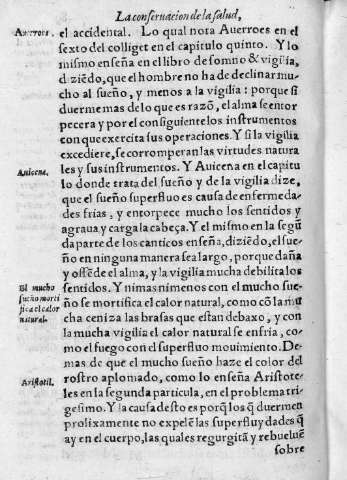 La conseruacion de la salud,
Auerroes.
el accidental. Lo qual nota Auerroes en el
sexto del colliget en el capitulo quinto. Y lo
mismo enseña en el libro de somno & vigilia,
diziẽdo, que el hombre no ha de declinar mu-
cho al sueño, y menos a la vigilia: porque si
duerme mas de lo que es razõ, el alma se entor
pecera y por el consiguiente los instrumentos
con que exercita sus operaciones. Y si la vigilia
excediere, se corromperan las virtudes natura
les y sus instrumentos. Y Auicena en el capitu
Auicena.
lo donde trata del sueño y de la vigilia dize,
que el sueño superfluo es causa de enfermeda-
des frias, y entorpece mucho los sentidos y
agraua y carga la cabeça. Y el mismo en la segũ
da parte de los canticos enseña, diziẽdo, el sue-
ño en ninguna manera sea largo, porque daña
y offẽde el alma, y la vigilia mucha debilita los
El mucho
sueño morti
fica el calor
natural.
sentidos. Y ni mas ni menos con el mucho sue-
ño se mortifica el calor natural, como cõ la mu
cha ceniza las brasas que estan debaxo, y con
la mucha vigilia el calor natural se enfria, co-
mo el fuego con el superfluo mouimiento. De
mas de que el mucho sueño haze el color del
Aristotil.
rostro aplomado, como lo enseña Aristote-
les en la segunda particula, en el problema tri-
gesimo. Y la causa desto es porq̃ los q̃ duermen
prolixamente no expelẽ las superfluydades q̃
ay en el cuerpo, las quales regurgitã y rebueluẽ
sobre